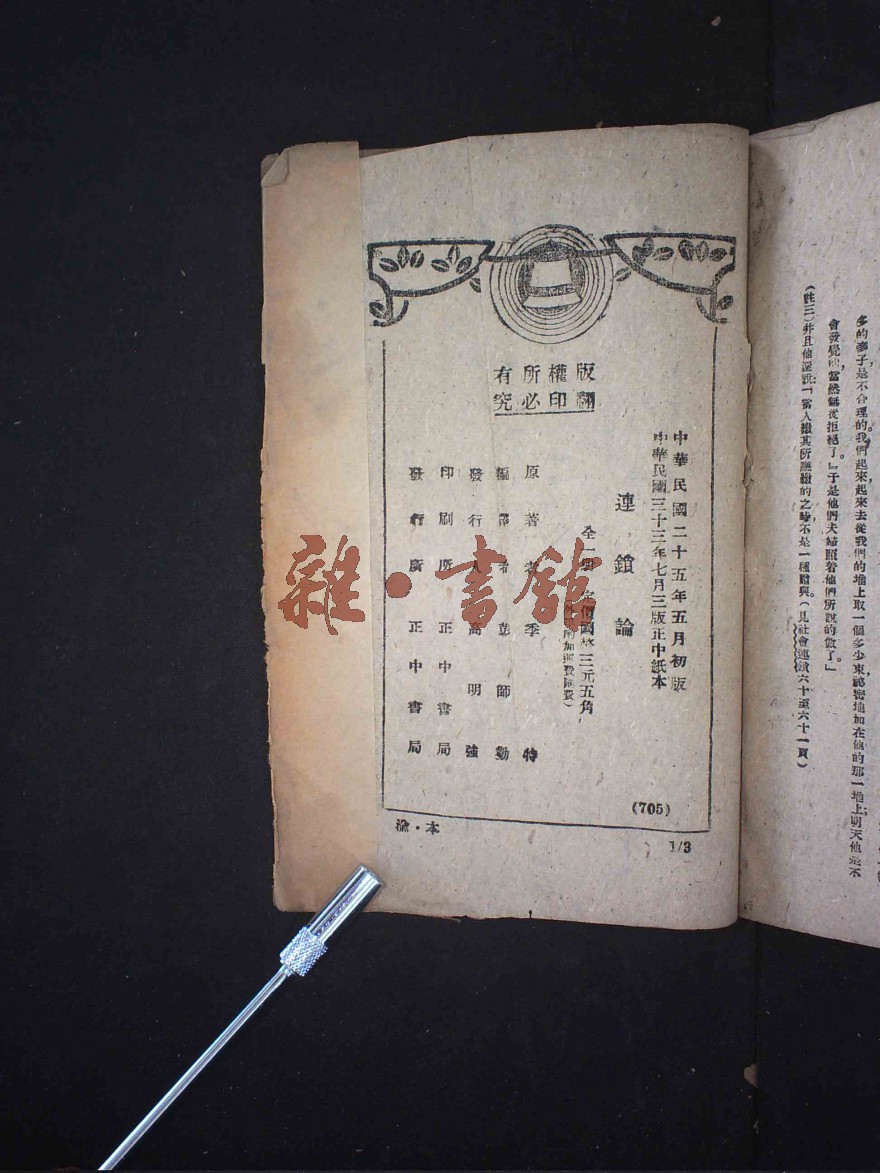 多的麥子是不合理的。我們起來，起來去從我們的堆上取一個多少束祕密地加在他的那一堆上，明天他是不
會發覺的，當然無從拒絕了。』于是他們夫婦照着他們所說的做了。」
（註三）幷且他還說：「當人繳其所應繳的之時，不是一種贈與。（見社會連鎖六十至六十一頁）
版權所有
翻印必究
中華民國二十五年五月初版
中華民國三十三年七月三版正中紙本
連鎖論
全一冊 定價國幣三元五角
原著者 季特
編譯者 彭師勤
發行人 高明強
印刷所 正中書局
發行所 正中書局
(705)
渝·本
1/3
雜·書館